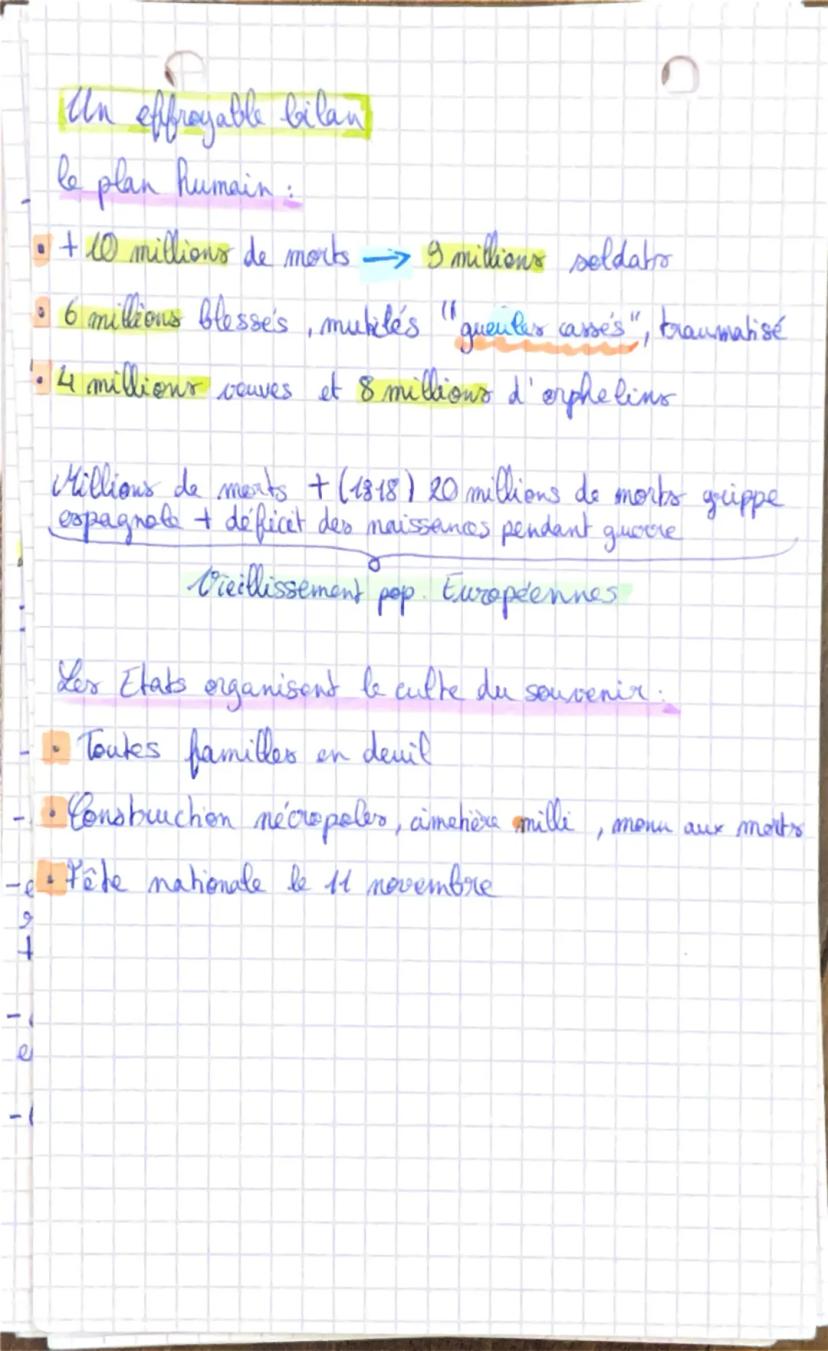 Un effroyable bilan
le plan humain :
• + 10 millions de morts → 9 millions soldats
• 6 millions blessés, mutilés "gueules cassés", traumatisé
• 4 millions veuves et 8 millions d'orphelins
Millions de morts + (1918) 20 millions de morts grippe
espagnole + déficit des naissances pendant guerre
Vieillissement pop. Européennes
Les Etats organisent le culte du souvenir :
• Toutes familles en deuil
• Construction nécropoles, cimetière milli, monu aux morts
• Fête nationale le 11 novembre